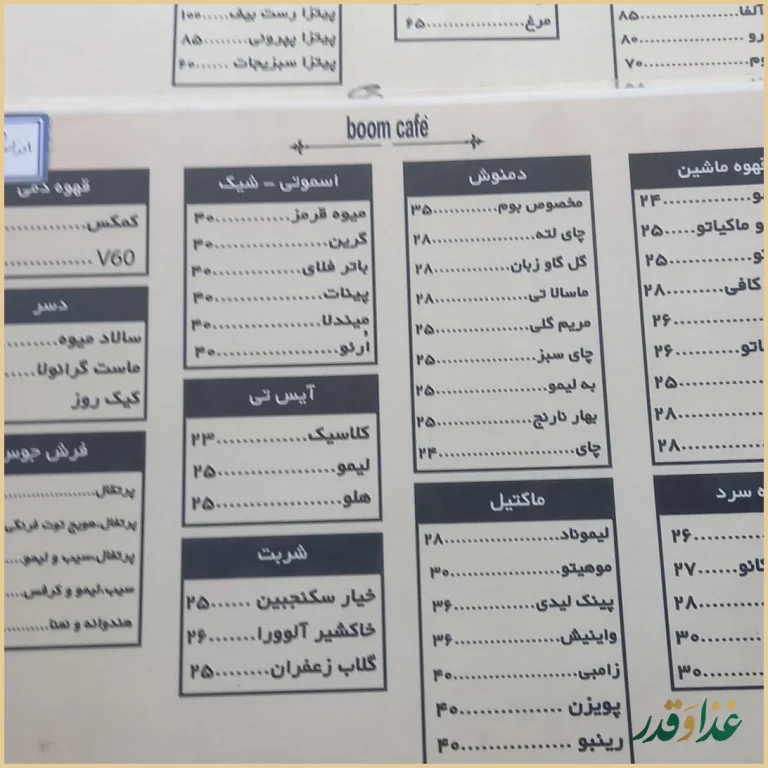 آلفا......۸۵
رو.........۸۰
وم.........۷۰
مرغ.........۶۵
پیتزا رست بیف.....۱۰۰
پیتزا پپرونی.......۸۵
پیتزا سبزیجات ......۶۰
boom café
قهوه ماشین
و.........۲۴
و ماکیاتو.....۲۵
تو.........۲۵
کافی.......۲۸
.........۲۶
اتو.........۲۶
.........۲۵
.........۲۸
.........۲۸
ه سرد
.........۲۶
کانو......۲۷
.........۲۸
.........۳۰
.........۳۰
دمنوش
مخصوص بوم..........۳۵
چای لته..........۲۸
گل گاو زبان..........۲۸
ماسالا تی..........۲۸
مریم گلی..........۲۵
چای سبز..........۲۵
به لیمو..........۲۵
بهار نارنج..........۲۵
چای..........۲۴
ماکتیل
لیموناد..........۲۸
موهیتو..........۳۰
پینک لیدی..........۳۶
واینیش..........۳۶
زامبی..........۴۰
پویزن ..........۴۰
رینبو ..........۴۰
اسموتی – شیک
میوه قرمز..........۳۰
گرین..........۳۰
باتر فلای..........۴۰
پینات..........۴۰
میندلا..........۴۰
اُرئو..........۴۰
آیس تی
کلاسیک..........۲۳
لیمو..........۲۵
هلو..........۲۵
شربت
خیار سکنجبین ......۲۵
خاکشیر آلوورا.......۲۶
گلاب زعفران........۲۵
قهوه دمی
کمکس..........
V60 ..........
دسر
سالاد میوه........
ماست گرانولا.....
کیک روز
فرش جوس
پرتقال..........
پرتقال،هویج توت فرنگی
پرتقال،سیب و لیمو...
سیب،لیمو و کرفس....
هندوانه و نعنا.......
غذا و قدر